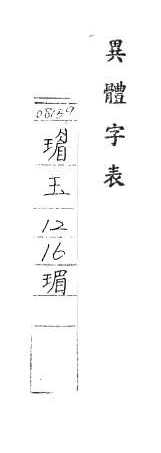 異體字表
08159
瑂
玉
12
16
瑂